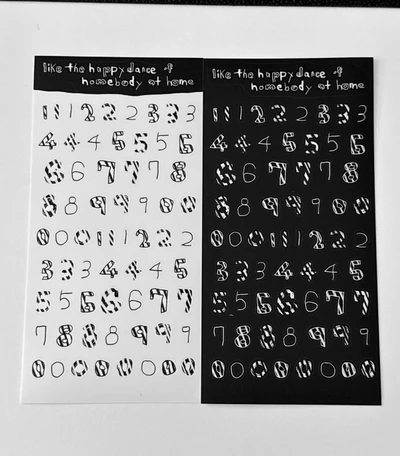 like the happy dance of
homebody at home
1 1 1 2 2 2 3 3 3
4 4 4 5 5 5 6
6 6 7 7 7 8
8 8 9 9 9 0 0
0 0 0 1 1 1 2 2 2
3 3 3 4 4 4 5
5 5 6 6 6 7 7
7 8 8 8 9 9 9
0 0 0 0 0 0 0 0
like the happy dance of
homebody at home
1 1 1 2 2 2 3 3 3
4 4 4 5 5 5 6
6 6 7 7 7 8
8 8 9 9 9 0 0
0 0 0 1 1 1 2 2 2
3 3 3 4 4 4 5
5 5 6 6 6 7 7
7 8 8 8 9 9 9
0 0 0 0 0 0 0 0